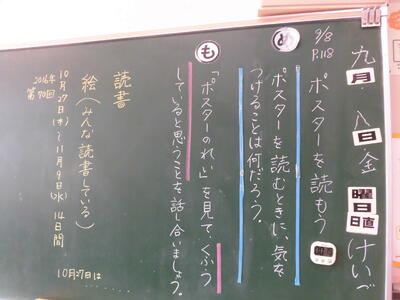 九月八日金曜日日直けいご
9/8
P.118
ポスターを読もう
め
ポスターを読むときに、気を
つけることは何だろう。
も
「ポスターのれい」を見て、くふう
していると思うことを話し合いましょう。
読書
絵(みんな読書している)
10月27日(木)〜11月9日(水) 14日間
2016年
第70回
10月27日は